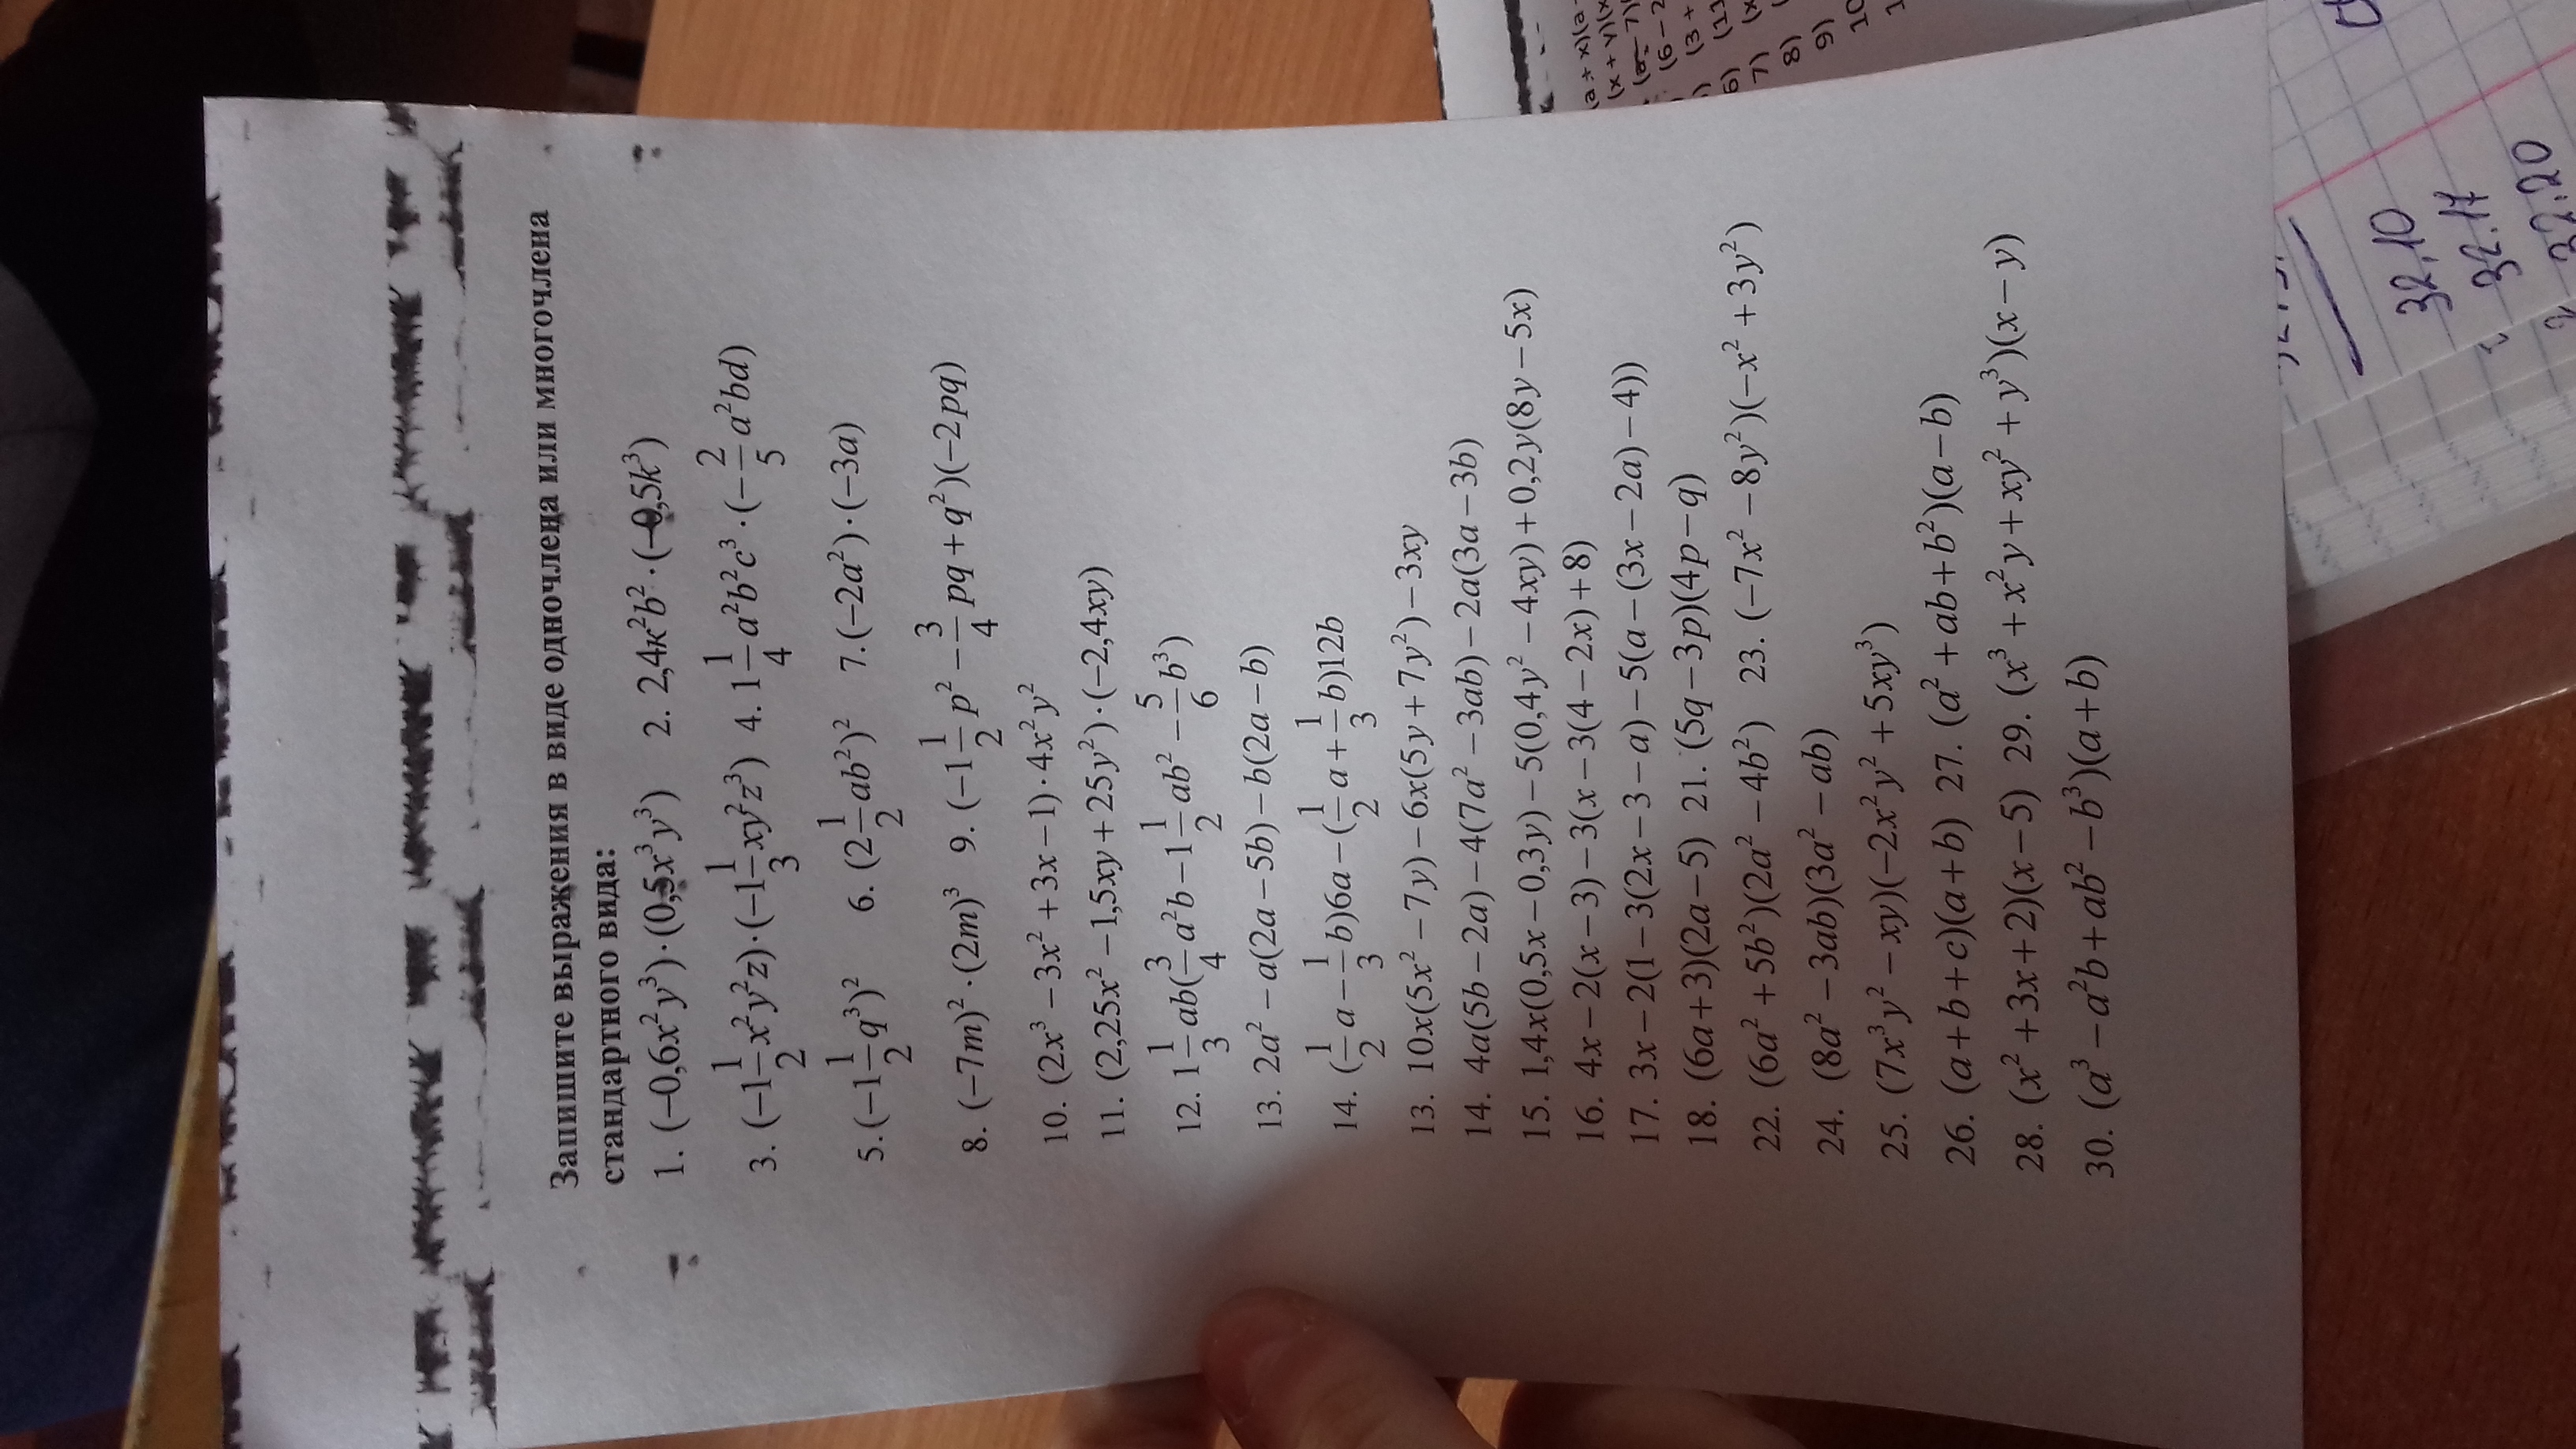 Запишите выражения в виде одночлена или многочлена
стандартного вида:
1. (−0,6x²y³)·(0,5x³y³) 2. 2,4к²b²·(−0,5k³)
3. (−1 1/2 x²y²z)·(−1 1/3 xy²z³) 4. 1 1/4 a²b²c³·(−2/5 a²bd)
5. (−1 1/2 q³)² 6. (2 1/2 ab²)² 7. (−2a²)·(−3a)
8. (−7m)²·(2m)³ 9. (−1 1/2 p² − 3/4 pq + q²)(−2pq)
10. (2x³ − 3x² + 3x − 1)·4x²y²
11. (2,25x² − 1,5xy + 25y²)·(−2,4xy)
12. 1 1/3 ab(3/4 a²b − 1 1/2 ab² − 5/6 b³)
13. 2a² − a(2a − 5b) − b(2a − b)
14. (1/2 a − 1/3 b)6a − (1/2 a + 1/3 b)12b
13. 10x(5x² − 7y) − 6x(5y + 7y²) − 3xy
14. 4a(5b − 2a) − 4(7a² − 3ab) − 2a(3a − 3b)
15. 1,4x(0,5x − 0,3y) − 5(0,4y² − 4xy) + 0,2y(8y − 5x)
16. 4x − 2(x − 3) − 3(x − 3(4 − 2x) + 8)
17. 3x − 2(1 − 3(2x − 3 − a) − 5(a − (3x − 2a) − 4))
18. (6a + 3)(2a − 5) 21. (5q − 3p)(4p − q)
22. (6a² + 5b²)(2a² − 4b²) 23. (−7x² − 8y²)(−x² + 3y²)
24. (8a² − 3ab)(3a² − ab)
25. (7x³y² − xy)(−2x²y² + 5xy³)
26. (a + b + c)(a + b) 27. (a² + ab + b²)(a − b)
28. (x² + 3x + 2)(x − 5) 29. (x³ + x²y + xy² + y³)(x − y)
30. (a³ − a²b + ab² − b³)(a + b)
32.10
32.17
32.20